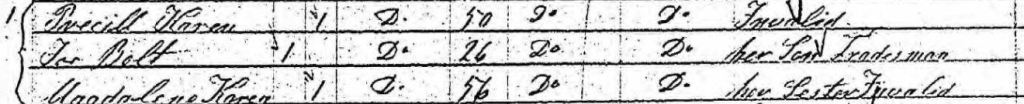 1 Precill Karen 1 D. 50 Do D. Invalid
Jas Bolt 1 Do 26 Do D. her Son Tradesman
Magdalene Karen 1 D. 56 Do D. her Sester Invalid